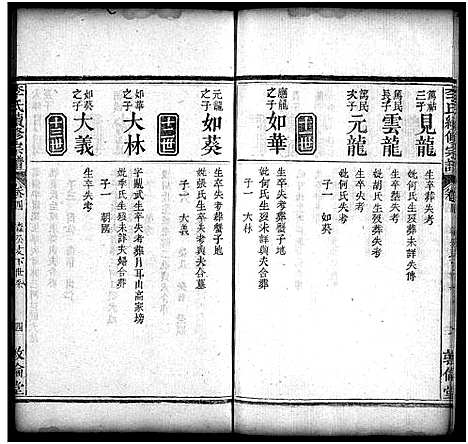 萬祜三子
見龍
生卒葬失考
妣何氏生歿未詳失傳
萬民長子
雲龍
生卒葬失考
妣胡氏生卒葬失考
萬民次子
元龍
生卒葬失考
妣何氏生歿未詳合葬
子一 如葵
十一世
應龍之子
如華
生卒葬失考
妣何氏生歿未詳合葬
子一 大林
元龍之子
如葵
生卒失考葬蟹子地
妣張氏生卒失考與夫合墓
子一 大義
十二世
如華之子
大林
字亂武生卒失考葬月耳山高家塝
妣李氏生歿未詳夫婦合葬
子一 朝國
如葵之子
大義
生卒失考
十三世
李氏續修宗譜
卷四
四
敦倫堂
李氏續修宗譜
敦倫堂